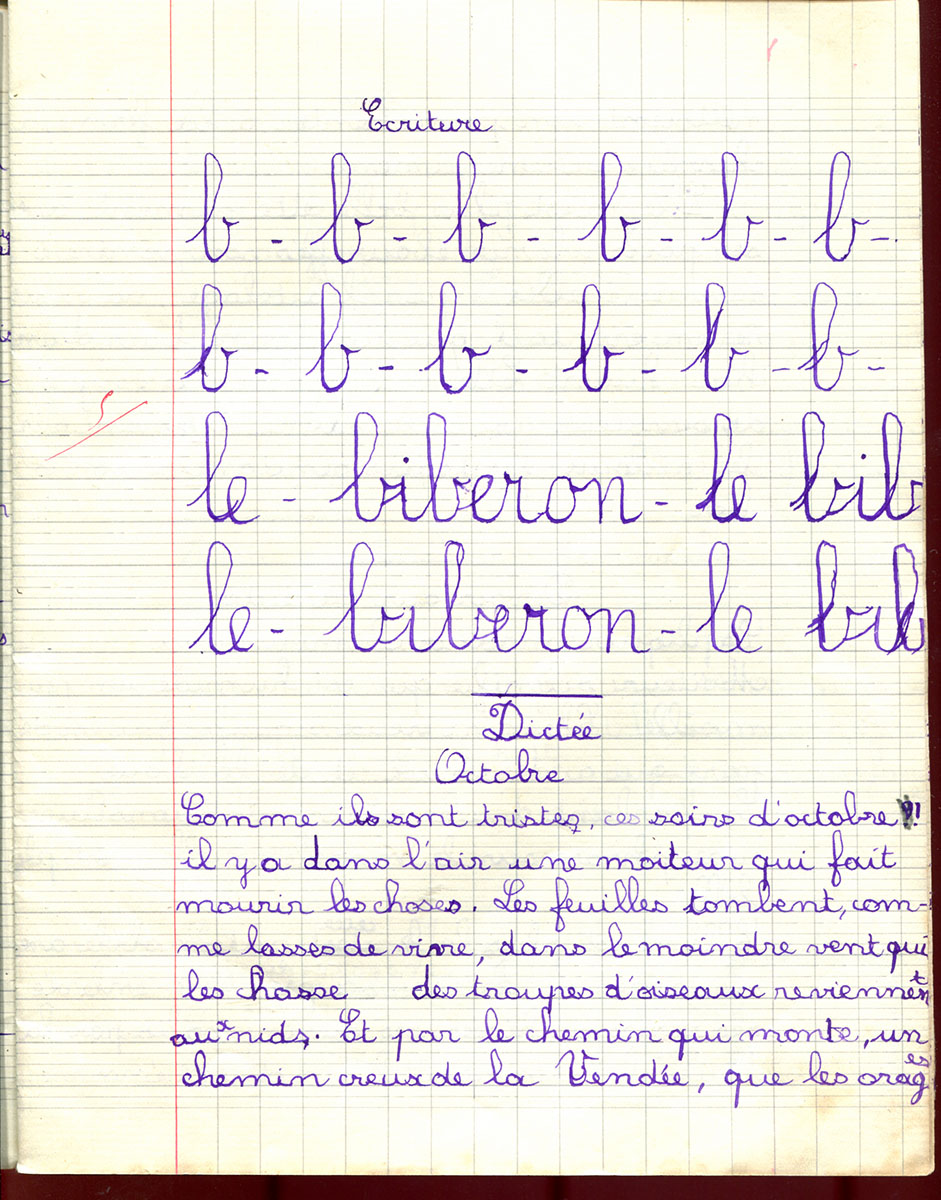 Ecriture
b - b - b - b - b - b -
b - b - b - b - b - b -
le - biberon - le bib
le - biberon - le bib
Dictée
Octobre
Comme ils sont tristes, ces soirs d'octobre !
il y a dans l'air une moiteur qui fait
mourir les choses. Les feuilles tombent, com-
me lasses de vivre, dans le moindre vent qui
les chasse des troupes d'oiseaux reviennent
aux nids. Et par le chemin qui monte, un
chemin creux de la Vendée, que les orages